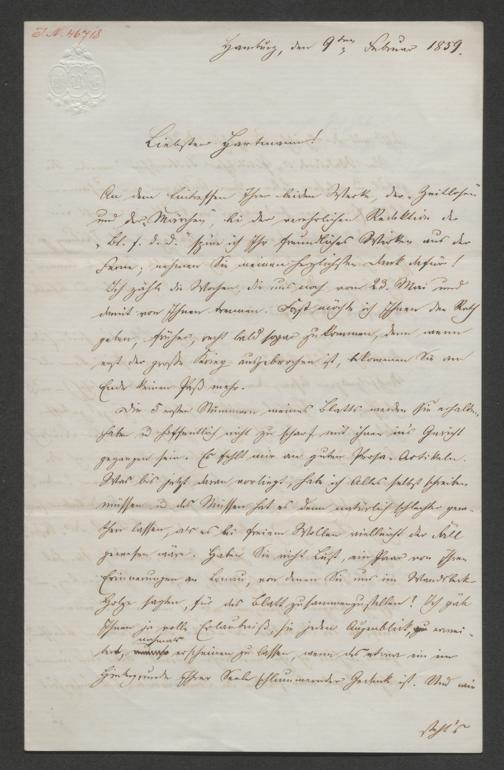 I. N. 46718
Hamburg, den 9ten Februar 1859.
Liebster Hartmann!
An dem Eintreffen Ihrer beiden Werke, der „Zeitlosen"
und der „Märchen", bei der verehrlichen Redaktion der
„Bl. f. d. D." spüre ich Ihr freundliches Wirken aus der
Ferne; nehmen Sie meinen herzlichsten Dank dafür!
Ich zähle die Wochen, die uns noch vom 23. Mai und
damit von Ihnen trennen. Fast möchte ich Ihnen den Rath
geben, früher, recht bald sogar zu kommen, denn wenn
erst der große Krieg ausgebrochen ist, bekommen Sie am
Ende keinen Paß mehr.
Die 5 ersten Nummern meines Blatts werden Sie erhalten
haben u hoffentlich nicht zu scharf mit ihnen ins Gericht
gegangen sein. Es fehlt mir an guten Prosa-Artikeln.
Was bis jetzt davon vorliegt, habe ich Alles selbst schreiben
müssen u das Müssen hat es denn natürlich schlechter gera-
then lassen, als es bei freiem Wollen vielleicht der Fall
gewesen wäre. Haben Sie nicht Lust, ein Paar von Ihren
Erinnerungen an Lenau, von denen Sie uns im Wandsbeck-
Holze sagten, für das Blatt zusammenzustellen? Ich gäbe
Ihnen ja volle Erlaubniß, sie jeden Augenblick, erwei-
tert, nochmals erscheinen zu lassen, wenn das etwa ein im
Hintergrunde Ihrer Seele schlummernder Gedank ist. Und wie
steht's